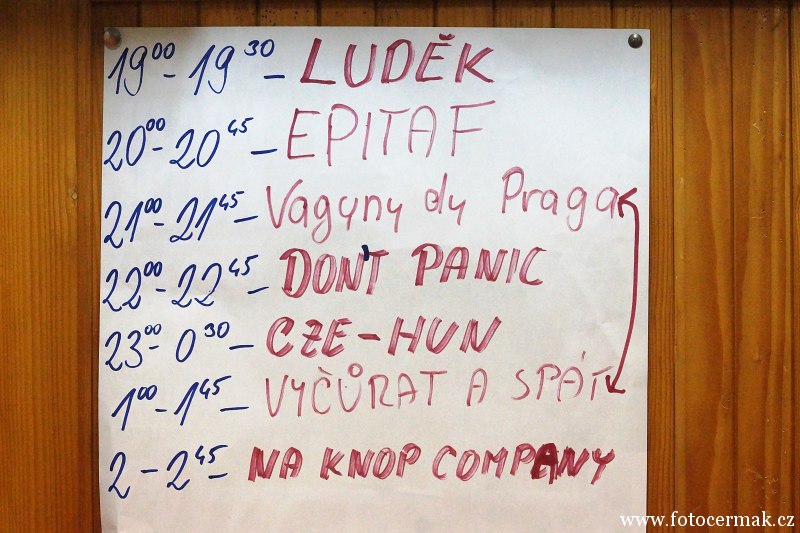 19⁰⁰ - 19³⁰ - LUDĚK
20⁰⁰ - 20⁴⁵ - EPITAF
21⁰⁰ - 21⁴⁵ - Vagyny dy Praga
22⁰⁰ - 22⁴⁵ - DON'T PANIC
23⁰⁰ - 0³⁰ - CZE-HUN
1⁰⁰ - 1⁴⁵ - VYČŮRAT A SPÁT
2 - 2⁴⁵ - NA KNOP COMPANY
www.fotocermak.cz